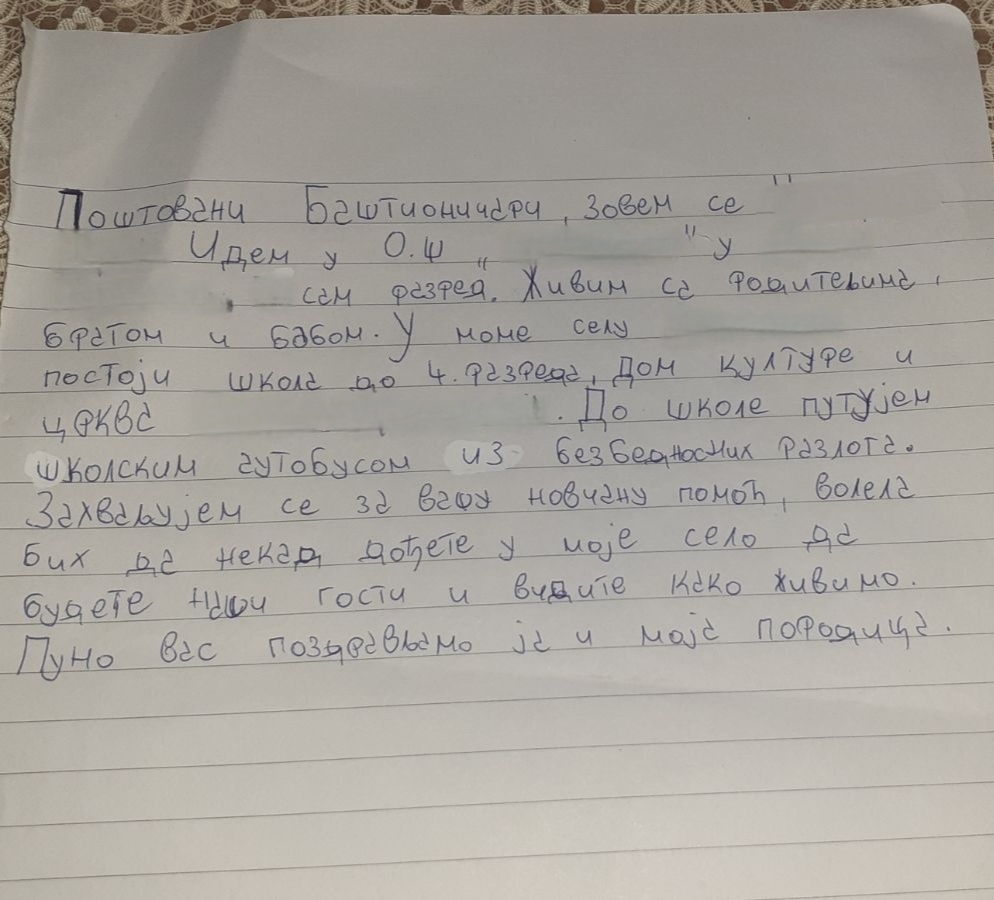 Поштовани Баштионичари, зовем се "
Идем у О.Ш „ " у
сам разред. Живим са родитељима,
братом и бабом. У моме селу
постоји школа до 4. разреда, Дом културе и
црква . До школе путујем
школским аутобусом из безбедносних разлога.
Захваљујем се за вашу новчану помоћ, волела
бих да некад дођете у моје село да
будете наши гости и видите како живимо.
Пуно вас поздрављамо ја и моја породица.